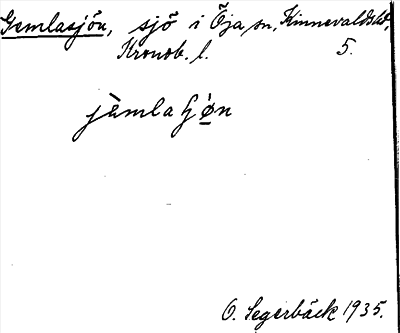 Gemlasjön, sjö i Öja sn, Kinnevaldshd,
Kronob. l. 5.
jèmla ɧøn
O. Segerbäck 1935.